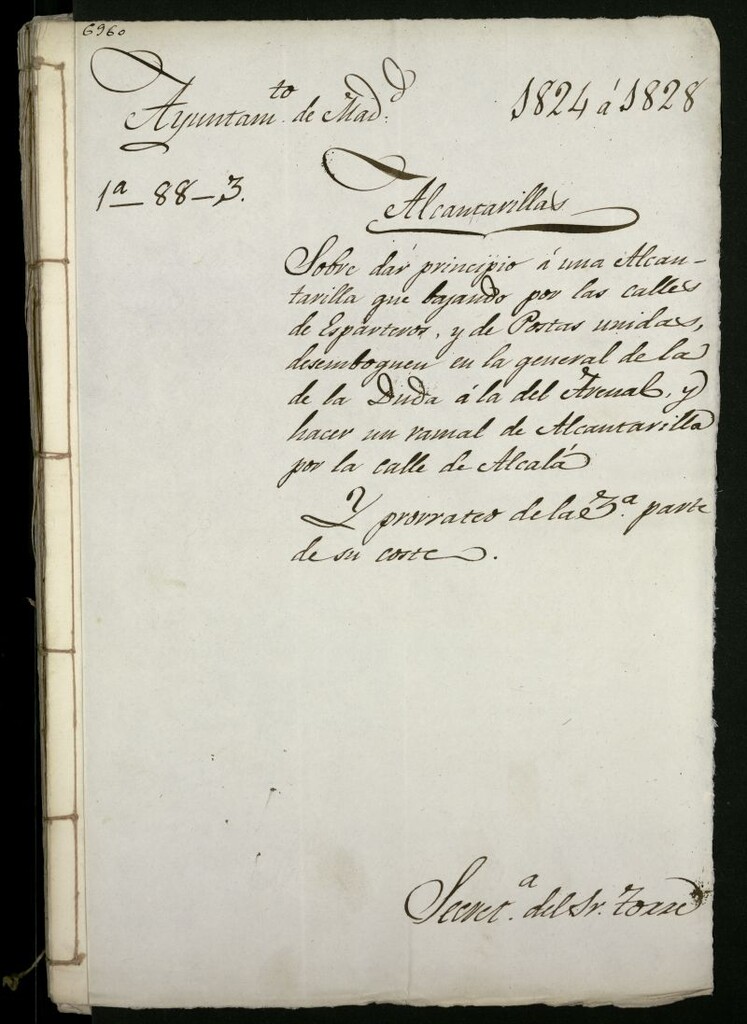 6960
Ayuntam.to de Mad.d 1824 á 1828
1a 88-3.
Alcantarillas
Sobre dár principio á una Alcan-
tarilla que bajando por las calles
de Esparteros, y de Postas unidas,
desemboguen en la general de la
de la Duda á la del Arenal, y
hacer un ramal de Alcantarilla
por la calle de Alcalá
Y prorrateo de la 3.a parte
de su coste.
Secret.a del Sr. Torre